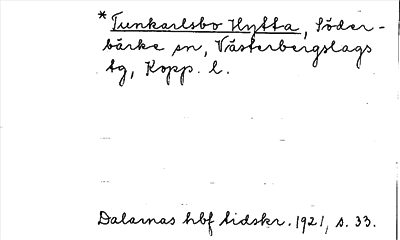 * Tunkarlsbo Hytta, Söder-
bärke sn, Västerbergslags
tg, Kopp. l.
Dalarnas hbf tidskr. 1921, s. 33.